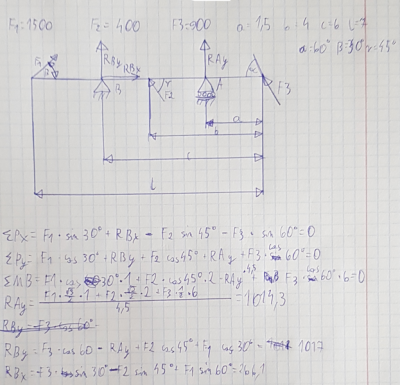 F1=1500 F2=400 F3=900 a=1,5 b=4 c=6 l=7
α=60° β=30° γ=45°
F1 RBy RBx B γ F2 RAy A α F3
a
b
c
l
ΣPx= F1·sin30°+RBx - F2 sin45° -F3· sin60°=0
ΣPy= F1·cos30°+RBy+ F2 cos45°+RAy+F3·cos60°=0
ΣMB= F1·cos30°·1+F2·cos45°·2-RAy·4,5 F3·cos60°·6=0
RAy= F1·√3/2·1+F2·√2/2·2+F3·1/2·6 / 4,5 =1014,3
RBy= -F3·cos60°
RBy= F3·cos60 - RAy+F2 cos45°+F1 cos30°= 1017
RBx= F3· sin30° F2 sin45°+F1 sin60°=266,1